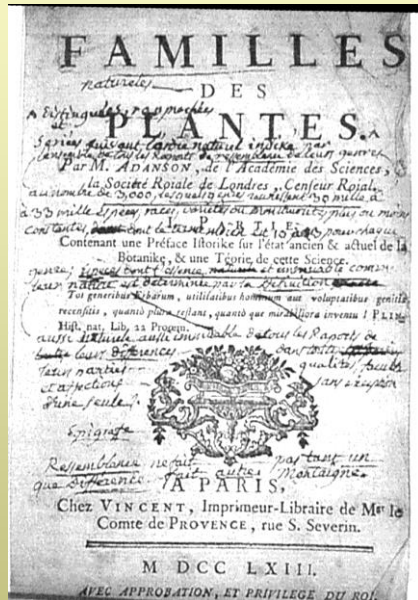 FAMILLES
natureles
DES
distinguées raprochées
et
PLANTES.
Sériées suivant l'ordre naturel indiké par
l'ensemble de tous les Raports de resemblance de leurs genres
Par M. ADANSON, de l'Académie des Sciences,
la Société Roiale de Londres, Censeur Roial.
au nombre de 3,000, lesquels genres réunissent 30 mille à
33 mille Espèces, races, variétés ou plus ou moins
I. PARTIE.
constantes, dont et 10 à 13 pour chaque
Contenant une Préface Istorike sur l'état ancien & actuel de la
Botanike, & une Téorie de cette Science.
genre; comm
leur est déterminée par la
Tot generibus Erbarum, utilitatibus hominum aut voluptatibus genitis
recensitis, quantò plura restant, quantò que mirabiliora inventu! PLIN.
Hist. nat. Lib. 22 Proœm.
aussi de tous les Raports de
leurs différences dans
leurs parties qualités,
et affections sans exception
d'une seule.
Epigrafe
Ressemblance ne fait pas tant un
que Différence fait autre. Montaigne.
A PARIS,
Chez VINCENT, Imprimeur-Libraire de Mgr le
Comte de PROVENCE, rue S. Severin.
M DCC LXIII.
AVEC APPROBATION, ET PRIVILEGE DU ROI.